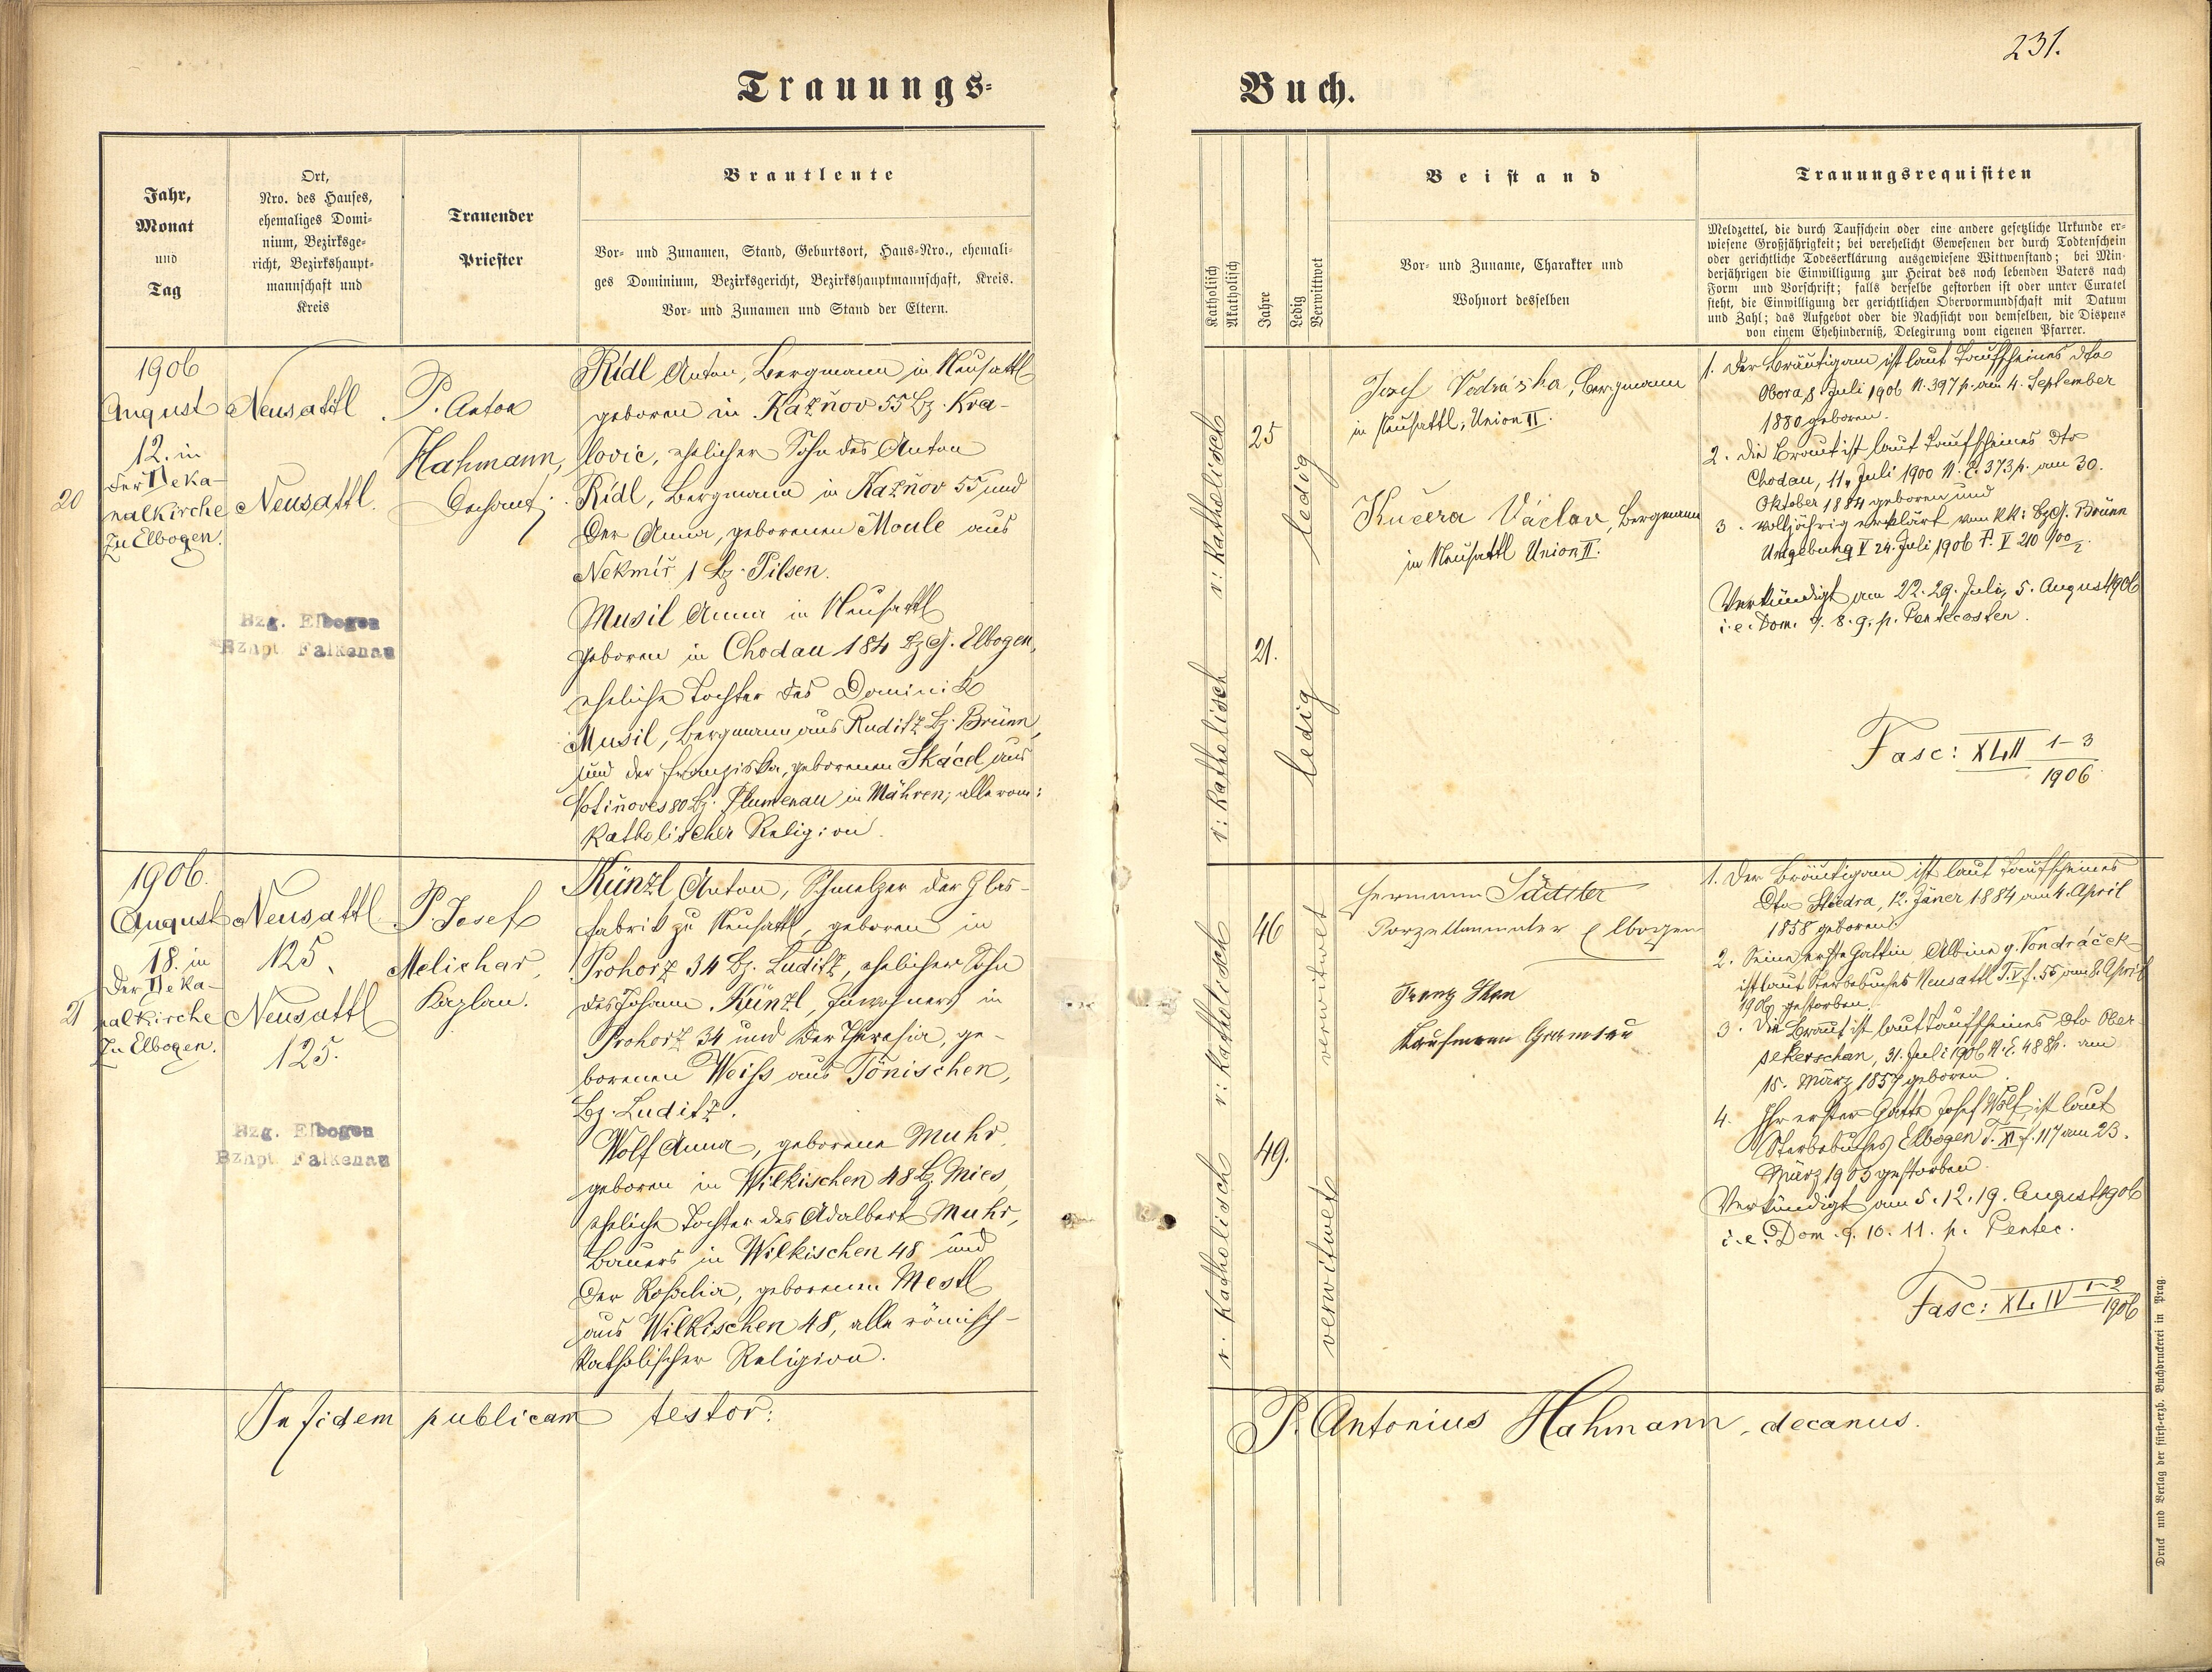 231.
Trauungs-
Buch.
Jahr,
Monat
und
Tag
Ort,
Nro. des Hauses,
ehemaliges Domi-
nium, Bezirksge-
richt, Bezirkshaupt-
mannschaft und
Kreis
Trauender
Priester
Brautleute
Vor- und Zunamen, Stand, Geburtsort, Haus-Nro., ehemali-
ges Dominium, Bezirksgericht, Bezirkshauptmannschaft, Kreis.
Vor- und Zunamen und Stand der Eltern.
Katholisch
Akatholisch
Jahre
Ledig
Verwittwet
Beistand
Vor- und Zuname, Charakter und
Wohnort desselben
Trauungsrequisiten
Meldzettel, die durch Taufschein oder eine andere gesetzliche Urkunde er-
wiesene Großjährigkeit; bei verehelicht Gewesenen der durch Todtenschein
oder gerichtliche Todeserklärung ausgewiesene Wittwenstand; bei Min-
derjährigen die Einwilligung zur Heirat des noch lebenden Vaters nach
Form und Vorschrift; falls derselbe gestorben ist oder unter Curatel
steht, die Einwilligung der gerichtlichen Obervormundschaft mit Datum
und Zahl; das Aufgebot oder die Nachsicht von demselben, die Dispens
von einem Ehehinderniß, Delegirung vom eigenen Pfarrer.
20
1906
August
12. in
der Deka-
nalkirche
zu Elbogen.
Neusattl
Neusattl.
Bzg. Elbogen
Bzhpt. Falkenau
P. Anton
Hahmann,
Dechant.
Rídl Anton, Bergmann in Neusattl
geboren in Kažňov 55 Bz. Kra-
lovic, ehelicher Sohn des Anton
Rídl, Bergmann in Kažňov 55 und
der Anna, geborenen Moule aus
Nekmíř 1 Bz. Pilsen.
Musil Anna in Neusattl
geboren in Chodau 184 Bz G. Elbogen,
eheliche Tochter des Dominik
Musil, Bergmann aus Ruditz Bz. Brünn,
und der Franziska, geborenen Skácel aus
80 Bz. Plumenau in Mähren; alle röm:
katholischer Religion.
r: katholisch
25
ledig
r: katholisch
21.
ledig
Josef Vodráska, Bergmann
in Neusattl, Union II.
Kučera Václav, Bergmann
in Neusattl Union II.
1. Der Bräutigam ist laut Taufscheines dto
Obora, 8. Juli 1906 N. 397 p. am 4. September
1880 geboren.
2. Die Braut ist laut Taufscheines dto
Chodau, 11. Juli 1900 N. E. 373 p. am 30.
Oktober 1884 geboren und
3. volljährig erklärt vom kk: BzG. Brünn
Umgebung V 24. Juli 1906 P. V 210/00/2.
Verkündigt am 22. 29. Juli, 5. August 1906
i. e. Dom. 7. 8. 9. p. Pentecosten.
Fasc: XLII 1-3
1906.
21
1906.
August
18. in
der Deka-
nalkirche
zu Elbogen.
Neusattl
125.
Neusattl
125.
Bzg. Elbogen
Bzhpt. Falkenau
P. Josef
Melichar,
Kaplan.
Künzl Anton, Schmelzer der Glas-
fabrik zu Neusattl, geboren in
Prohorz 34 Bz. Luditz, ehelicher Sohn
des Johann Künzl, Inwohners in
Prohorz 34 und der Theresia, ge-
borenen Weiss aus Tönischen,
Bz. Luditz.
Wolf Anna, geborene Muhr,
geboren in Wilkischen 48 Bz. Mies,
eheliche Tochter des Adalbert Muhr,
Bauers in Wilkischen 48 und
der Rosalia, geborenen Mestl
aus Wilkischen 48, alle römisch-
katholischer Religion.
r: katholisch
46
verwitwet
r. katholisch
49.
verwitwet
Hermann Sattler
Porzellanmaler Elbogen
Franz
Kaufmann
1. Der Bräutigam ist laut Taufscheines
dto Stiedra, 12. Jäner 1884 am 4. April
1858 geboren.
2. Seine erste Gattin Albine g. Vondráček
ist laut Sterbebuches Neusattl T. V. f. 55 am 8. April
1906 gestorben.
3. Die Braut ist laut Taufscheines dto Ober-
sekerschan, 31. Juli 1906 N. E. 488 p. am
15. März 1857 geboren.
4. Ihr erster Gatte Josef Wolf ist laut
Sterbebuches Elbogen T. XI f. 117 am 23.
März 1905 gestorben.
Verkündigt am 5. 12. 19. August 1906
i. e. Dom. 9. 10. 11. p. Pentec.
Fasc: XLIV 1-2
1906
In fidem publicam testor:
P. Antonius Hahmann, decanus.
Druck und Verlag der fürst-erzb. Buchdruckerei in Prag.